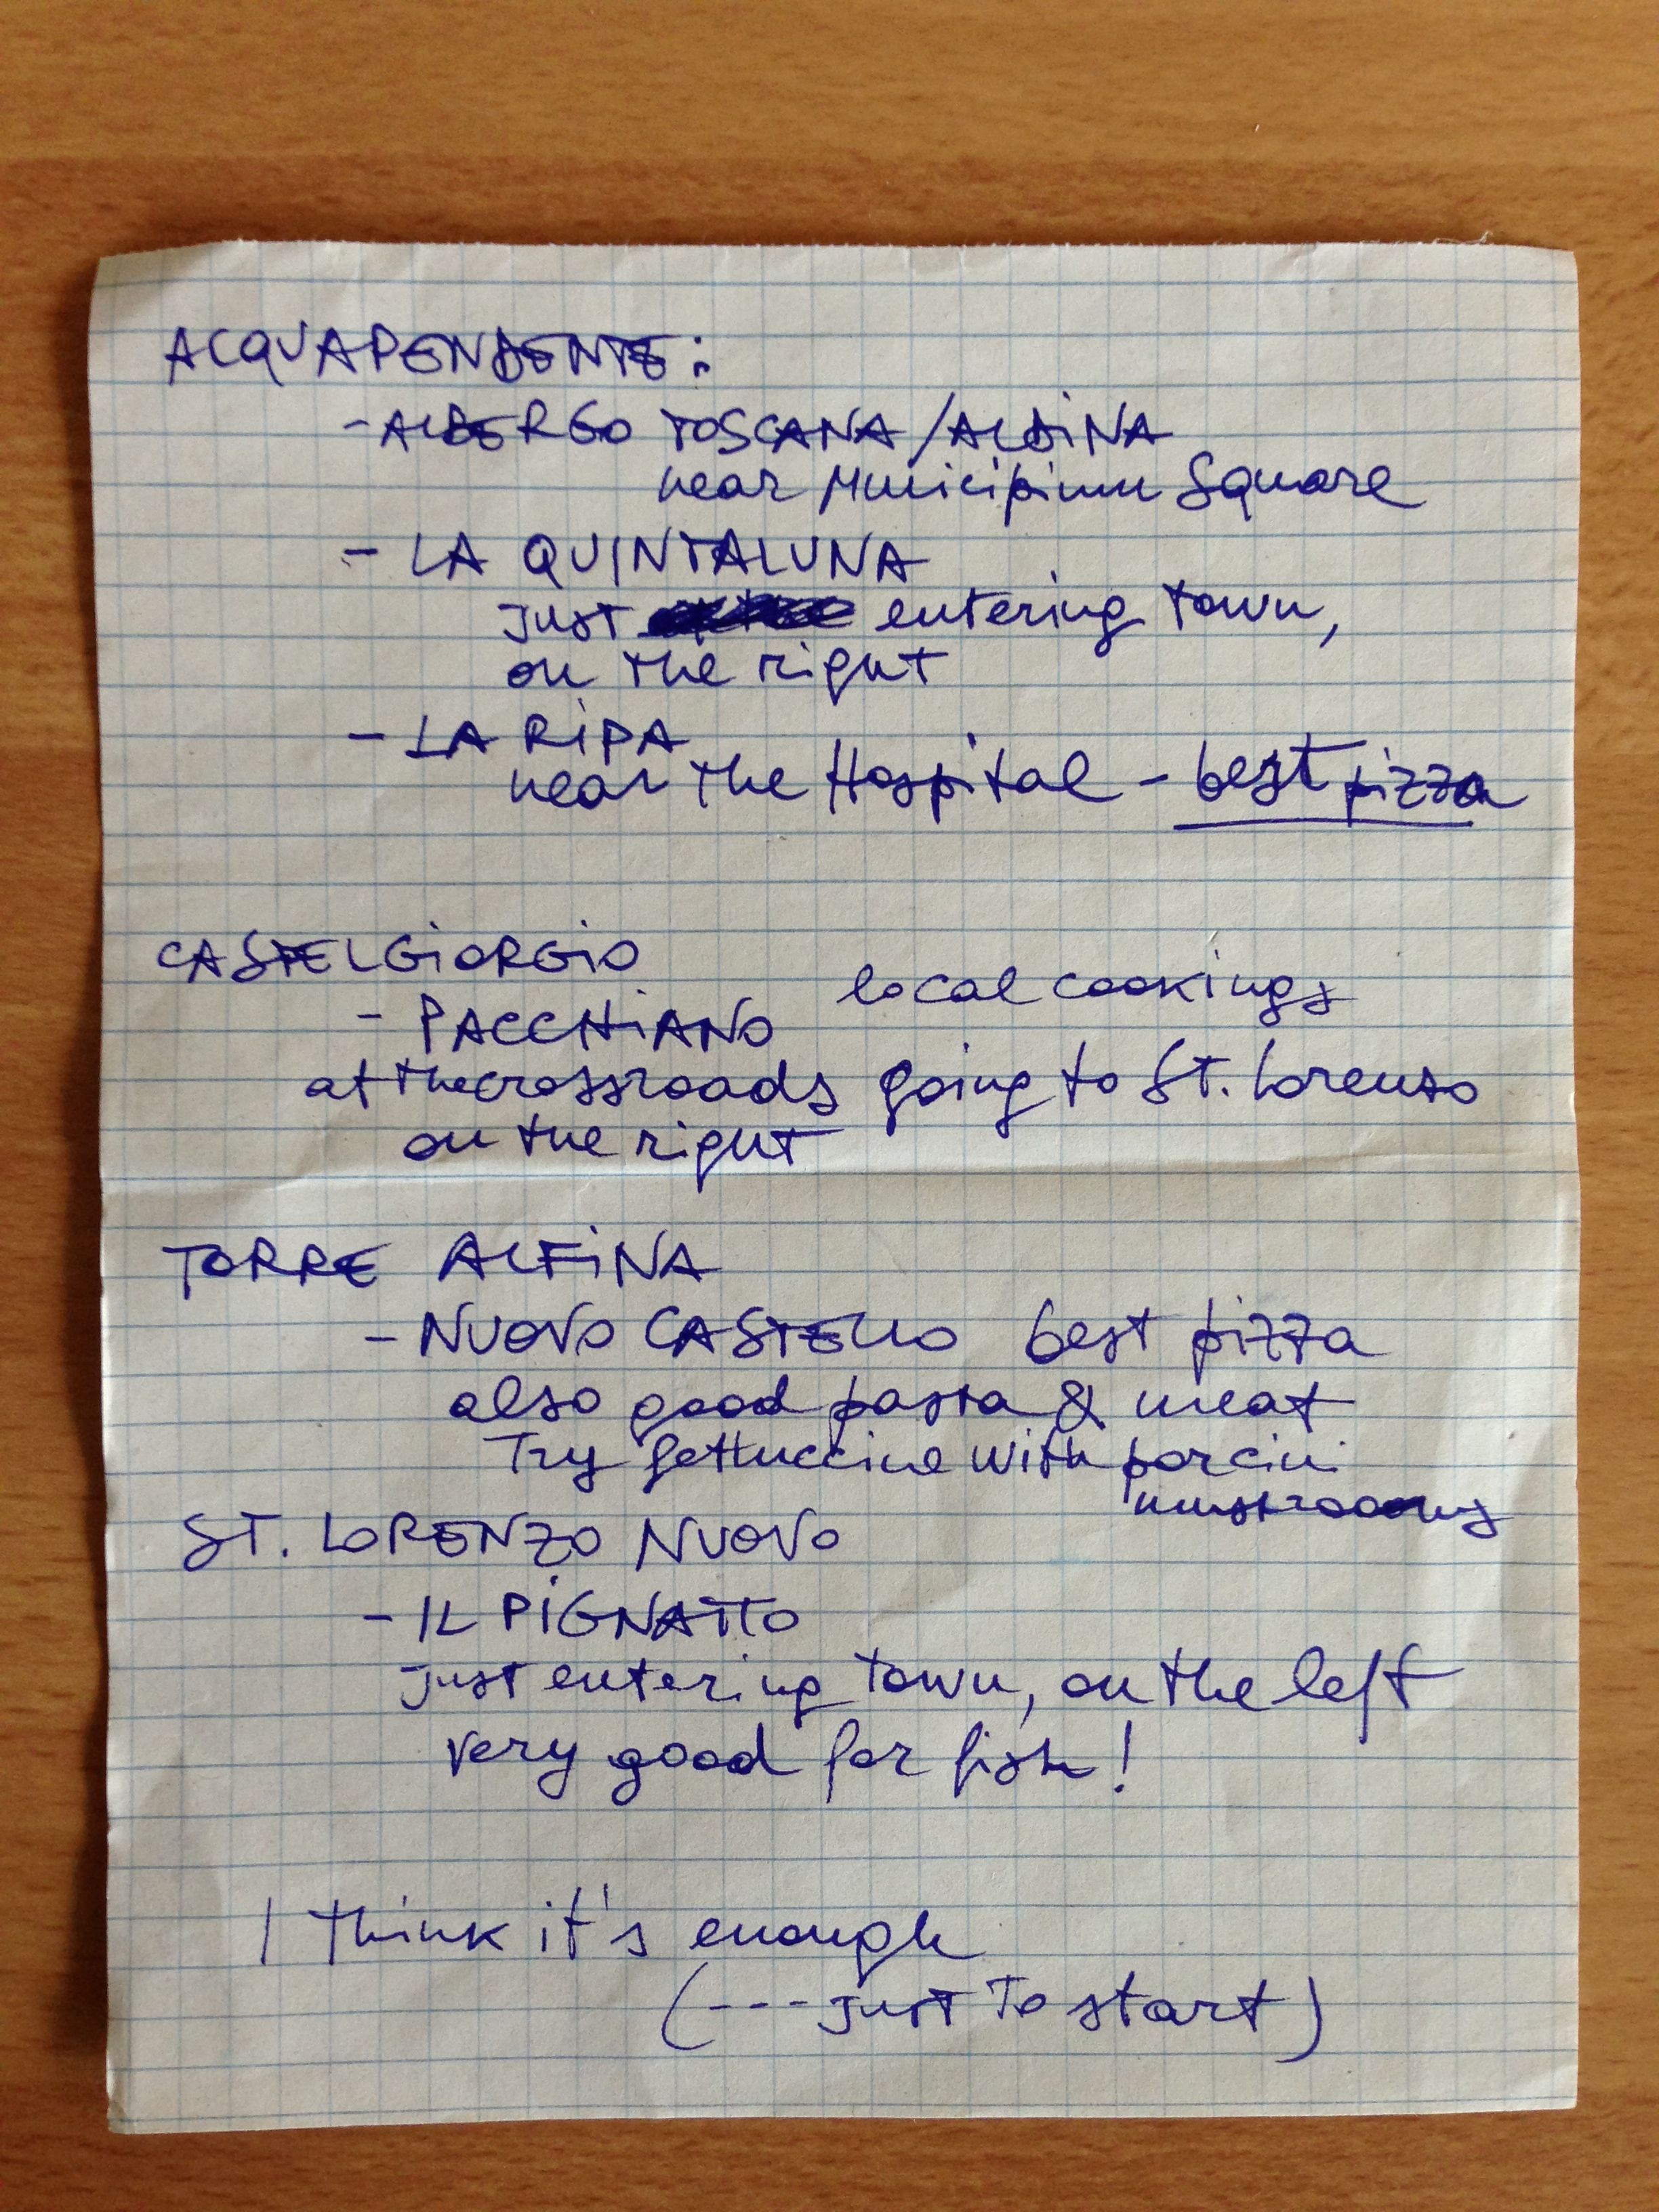 ACQUAPENDENTE:
- ALBERGO TOSCANA/ALDINA
near Municipium Square
- LA QUINTALUNA
Just entering town,
on the right
- LA RIPA
near the Hospital - best pizza
CASTELGIORGIO
local cookings
- PACCHIANO
at the crossroads going to St. Lorenzo
on the right
TORRE ALFINA
- NUOVO CASTELLO best pizza
also good pasta & meat
Try fettuccine with porcini
mushrooms
ST. LORENZO NUOVO
- IL PIGNATTO
Just entering town, on the left
very good for fish!
I think it's enough
(--- just to start)